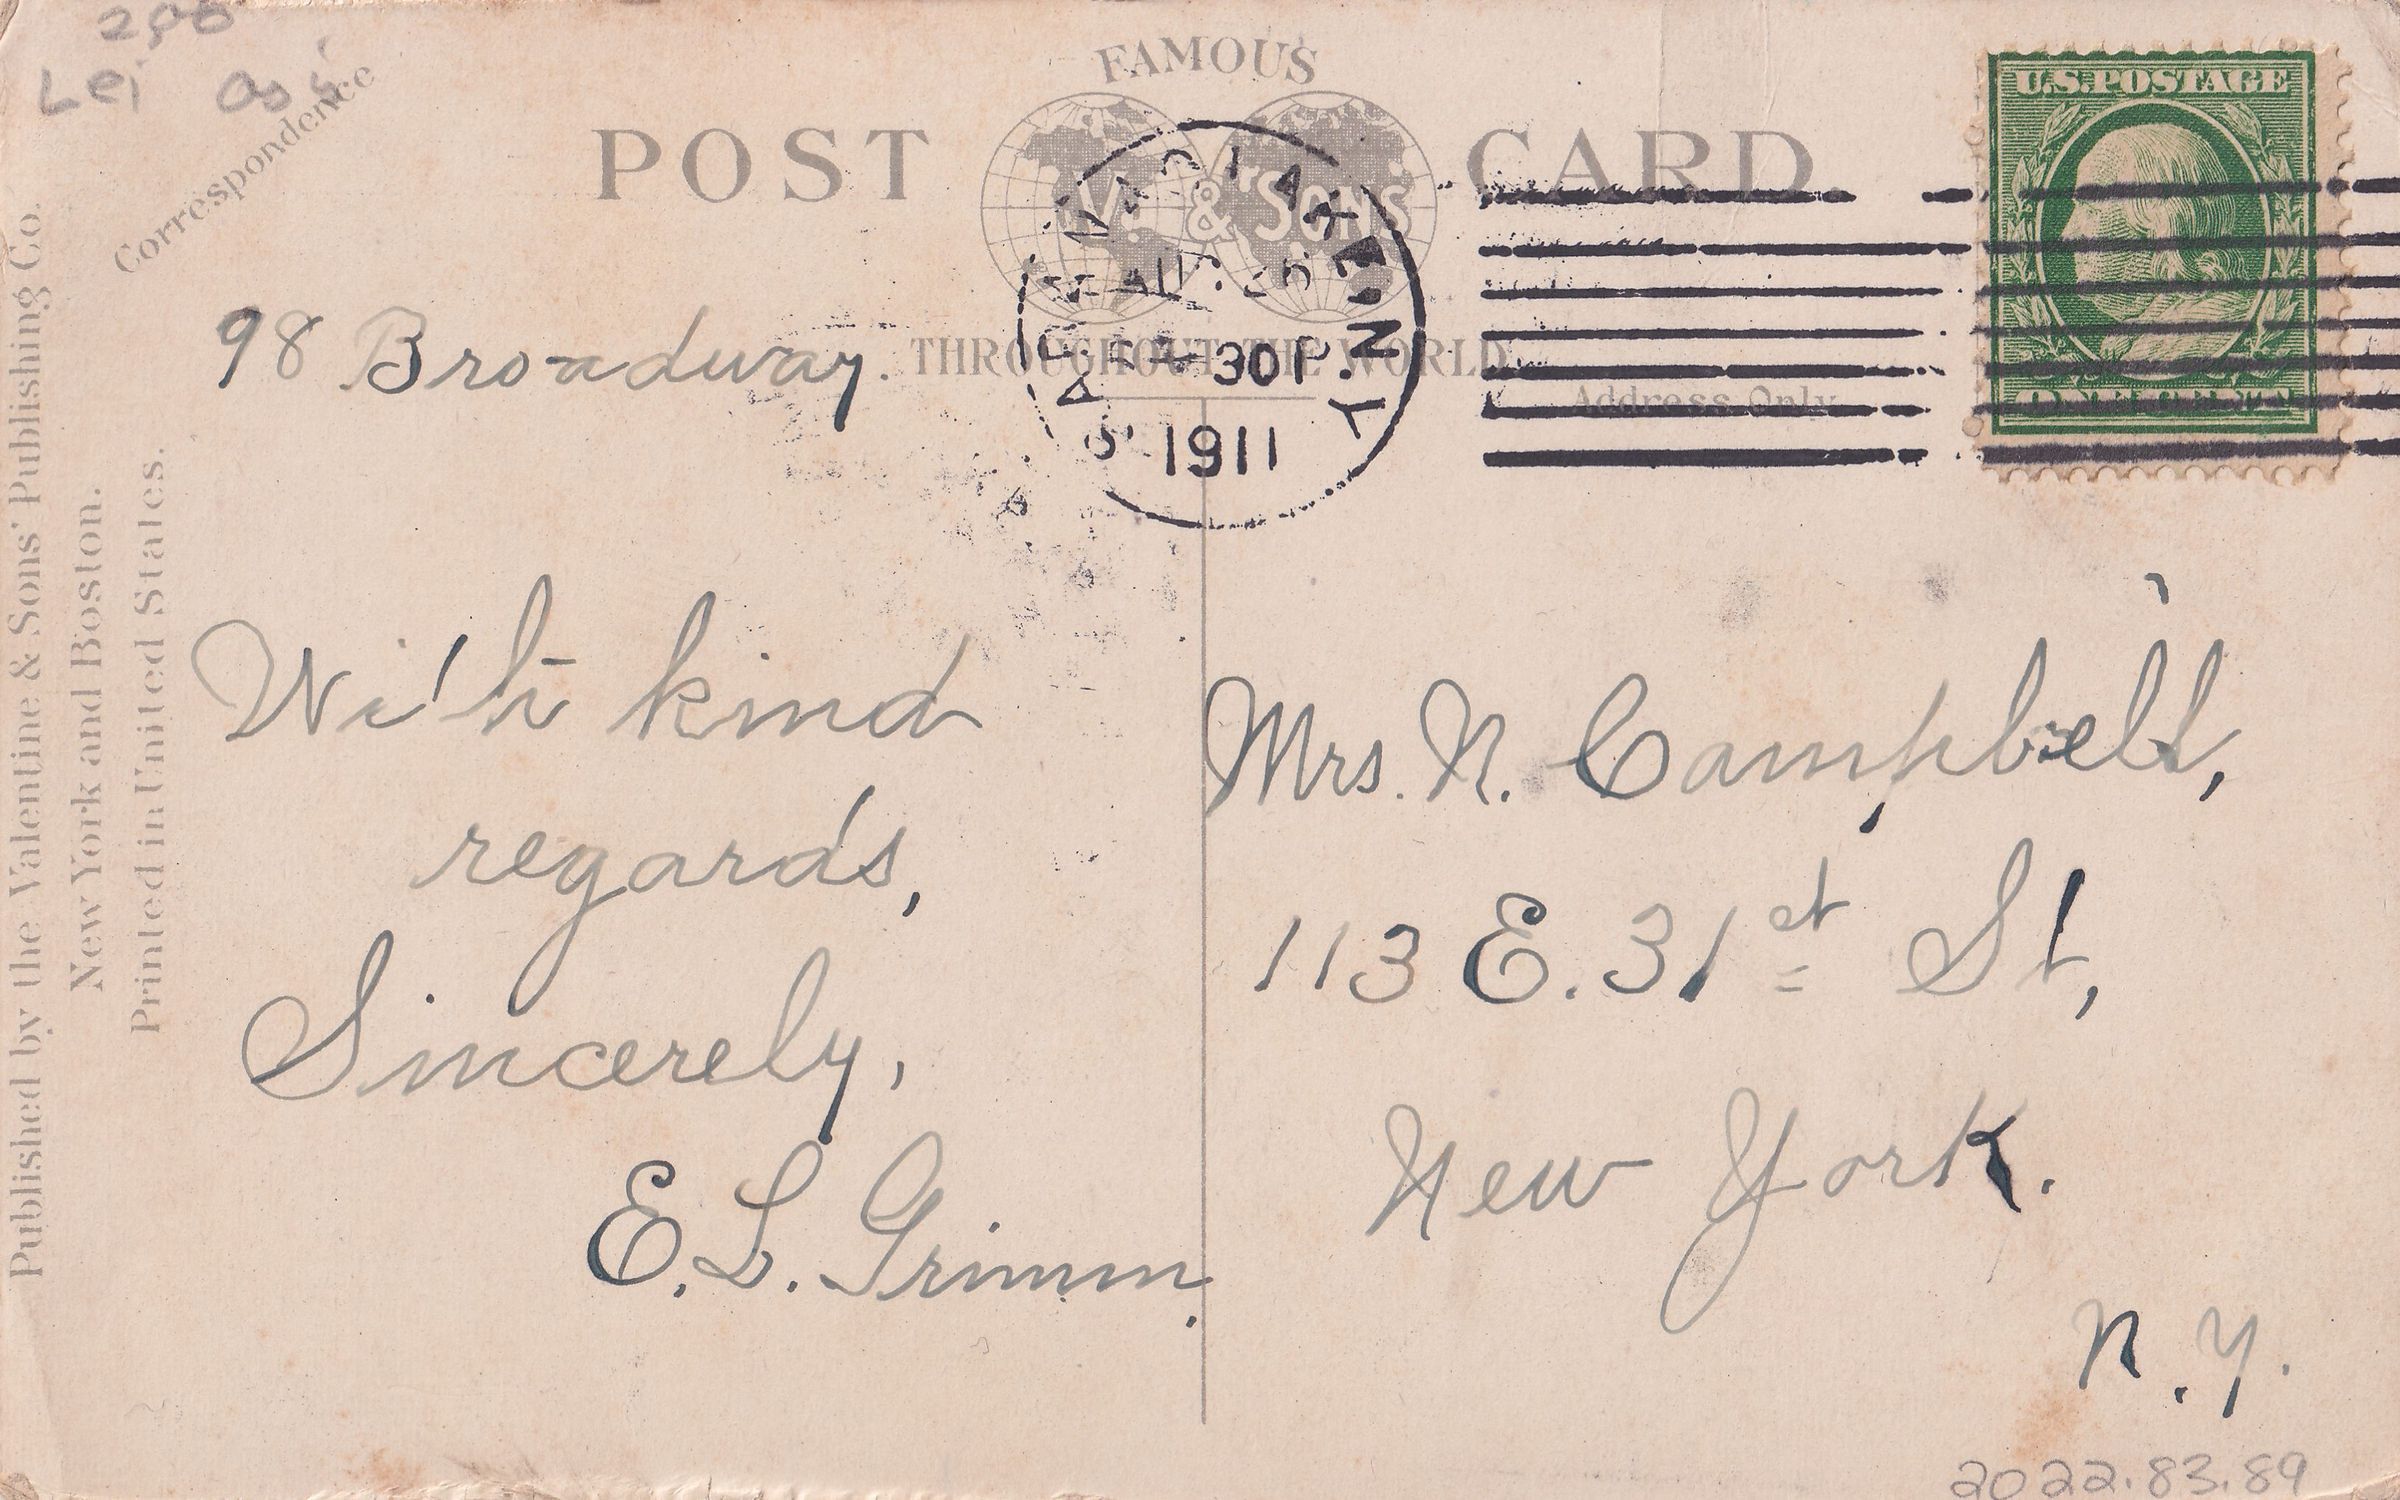 2,00
Correspondence
FAMOUS
POST CARD.
& SONS
THROUGHOUT THE WORLD
Address Only
U.S. POSTAGE
ONE CENT
AUG 25
30 P
1911
N.Y.
98 Broadway.
With kind
regards,
Sincerely,
E. L. Grimm.
Mrs. N. Campbell,
113 E. 31st St,
New York.
N.Y.
Published by the Valentine & Sons' Publishing Co.
New York and Boston.
Printed in United States.
2022.83.89